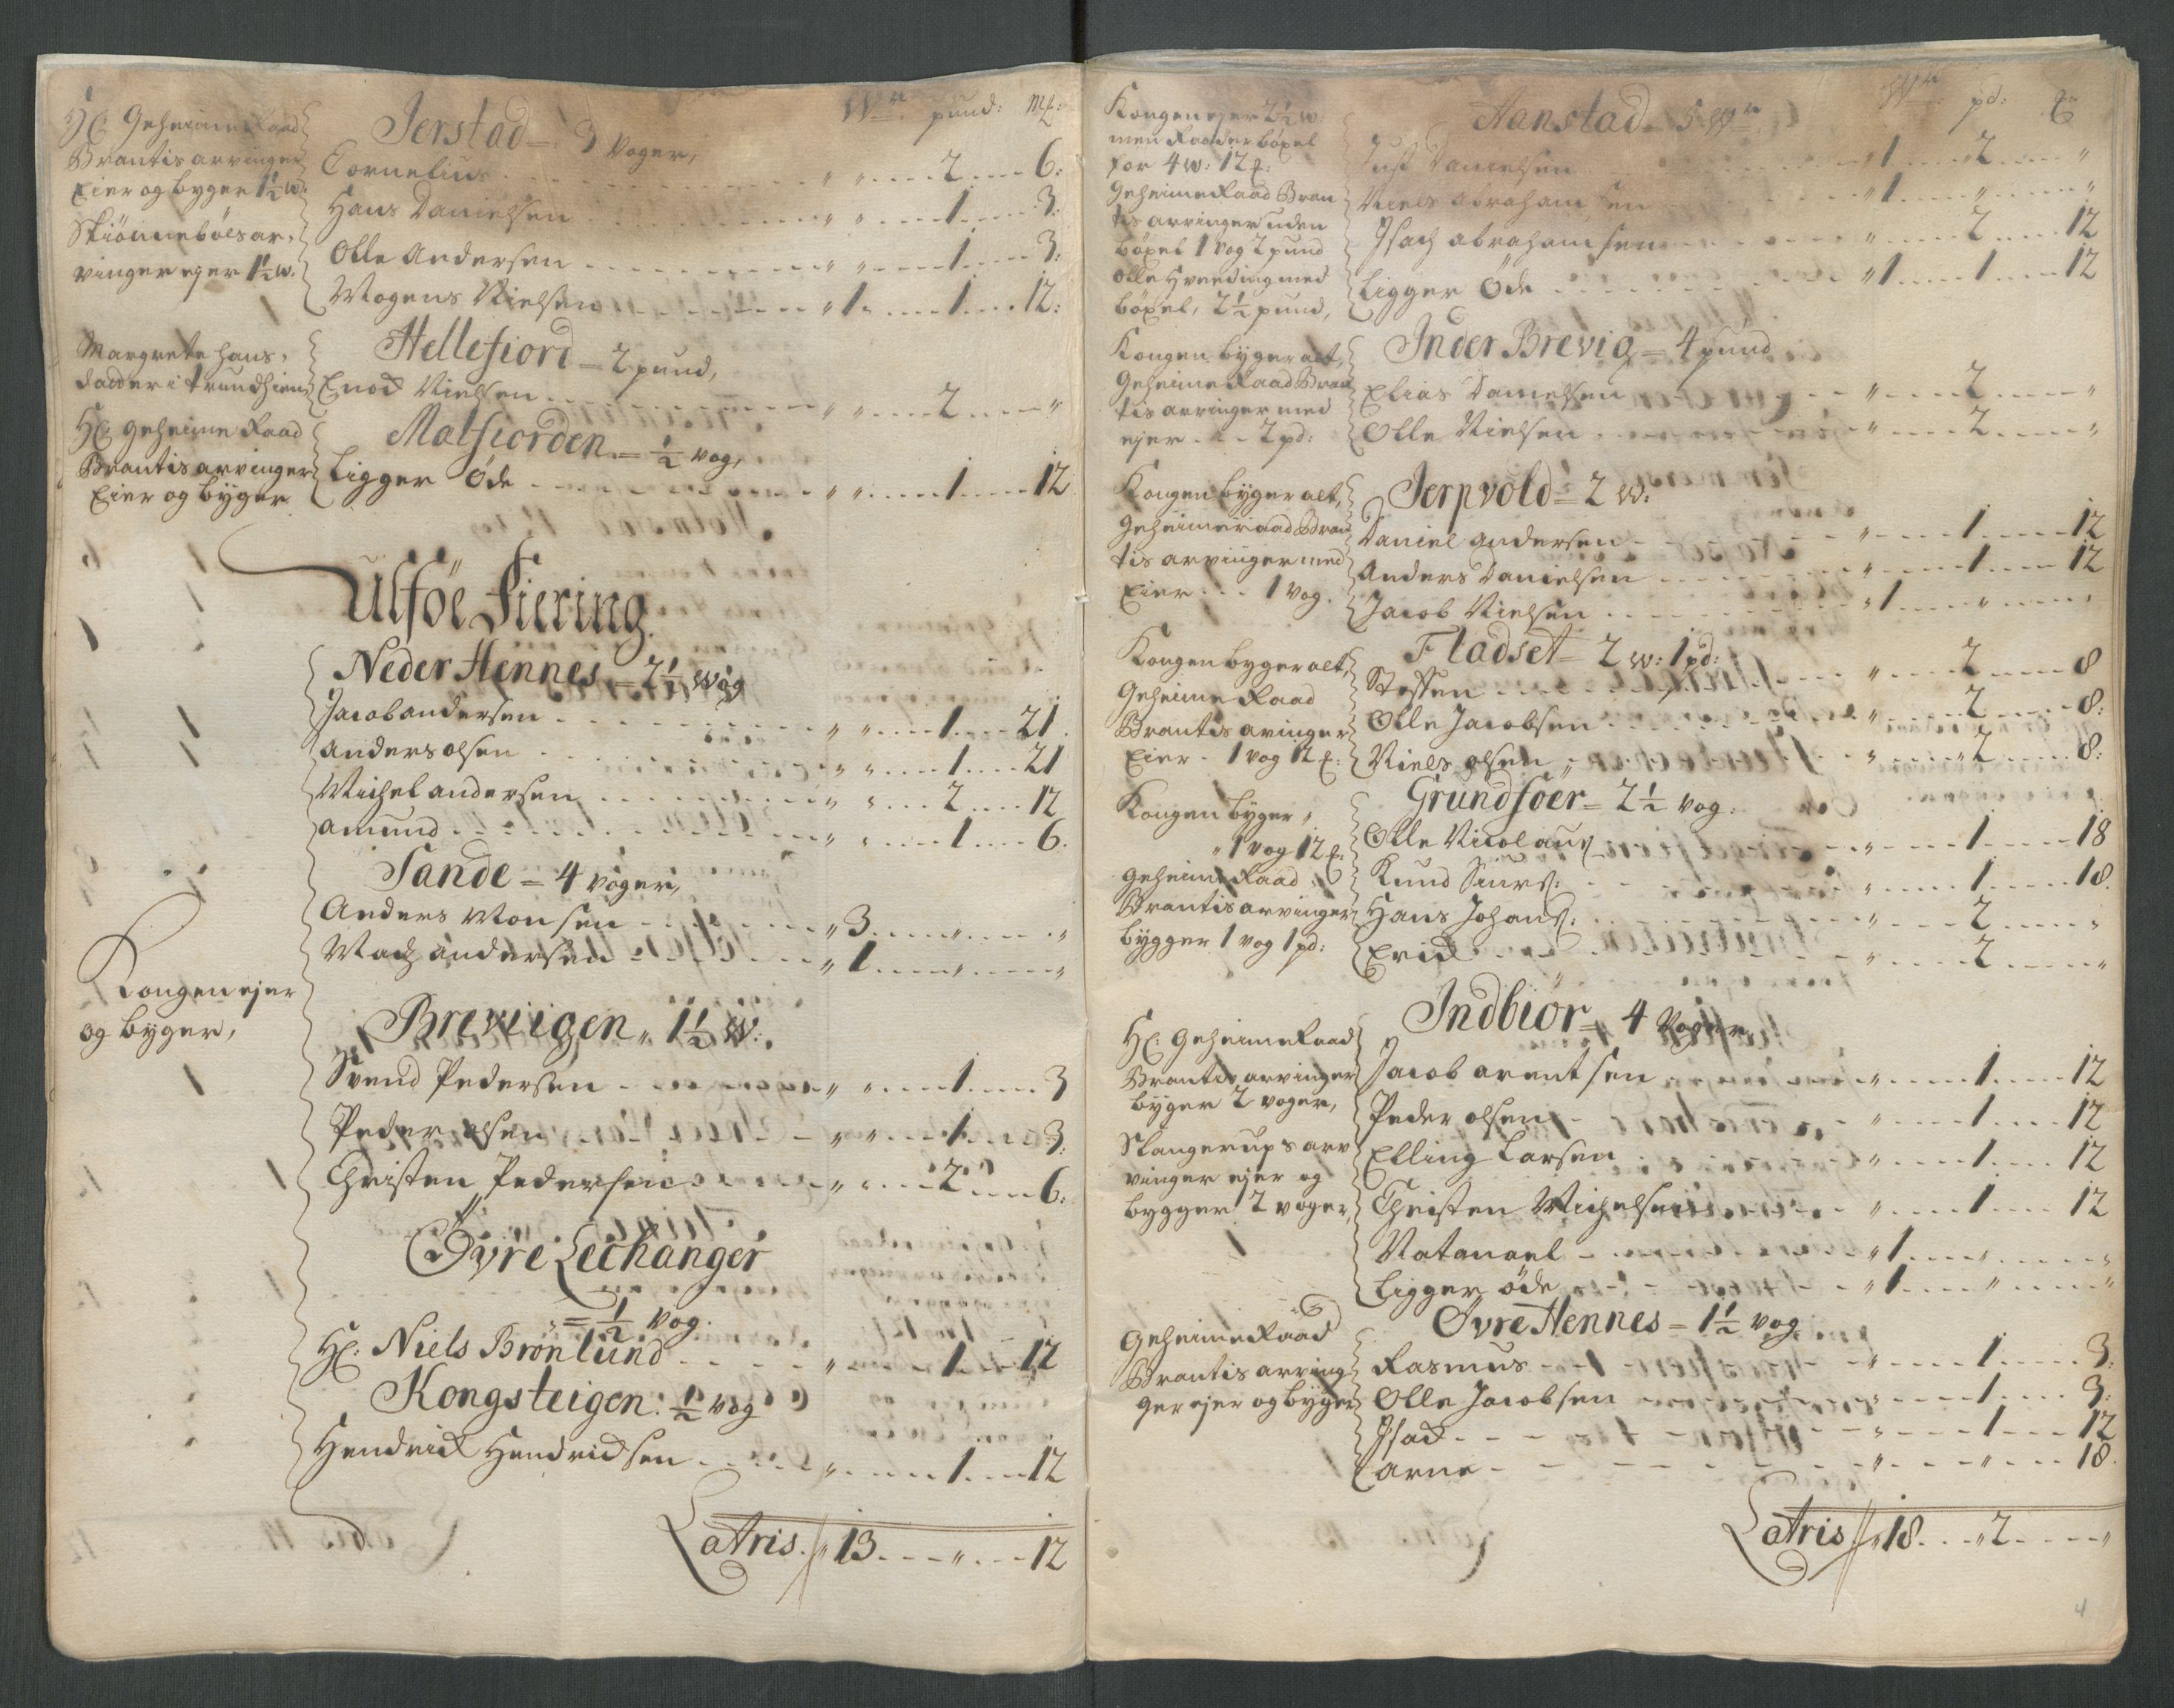 Wr. pund: Mk:
H: Geheime Raad
Brantis arvinger
Eier og byger 1½ w:
Skiönneböls ar-
vinger ejer 1½ w.
Jerstad = 3 voger,
Cornelius " " 2 6:
Hans Danielsen " " 1 3:
Olle Andersen " " 1 3:
Mogens Nielsen " 1 1 12:
Margrete Hans-
datter i Trundhiem
Hellefiord = 2 pund,
Enock Nielsen " " 2 "
H: Geheime Raad
Brantis arvinger
Eier og byger
Malfiorden = ½ vog,
Ligger Öde " " 1 12
Ulföe Fiering
Neder Hennes = 2½ Wog
Jacob andersen " " 1 21
anders olsen " " 1 21
Michel andersen " " 2 12
amund " " 1 6.
Sande = 4 voger,
Anders Monsen " 3 " "
Madz andersen " 1 " "
Kongen ejer
og byger,
Brewiigen " 1½ W:
Svend Pedersen " " 1 3
Peder olsen " " 1 3:
Christen Pedersen " " 2 6:
Öyre Lechanger
= ½ vog.
H: Niels Brönlund " 1 12
Kongsteigen: ½ vog
Hendrick Hendricksen " 1 12
Latris " 13 " 12
Wr pd:
Kongen ejer 2½ w:
men Raader böxel
for 4 w: 12 :
Geheime Raad Bran
tis arvinger uden
böxel 1 vog 2 pund
Olle Hveding med
böxel, 2½ pund,
Aanstad = 5 Wr
Just Danielsen " 1 2 "
Niels Abrahamsen " 1 " "
Isach abrahamsen " 2 12
Ligger Öde " 1 1 12
Kongen byger alt,
Geheime Raad Bran
tis arvinger med
ejer 2 pd:
Inder Brevig = 4 pund
Elias Danielsen " 2 "
Olle Nielsen " 2 "
Kongen byger alt,
Geheimeraad Bran
tis arvinger med
Eier 1 vog.
Jerpvold = 2 w:
Daniel andersen " 1 12
Anders Danielsen " 1 12
Jacob Nielsen " 1 " "
Kongen byger alt,
Geheime Raad
Brantis arvinger
Eier 1 vog 12 :
Fladset = 2 w: 1 pd:
Steffen " 2 8
Olle Jacobsen " 2 8:
Niels olsen " 2 8:
Kongen byger,
" 1 vog 12 :
Geheime Raad
Brantis arvinger
bygger 1 vog 1 pd:
Grundföer = 2½ vog.
Olle Nicolaus " 1 18
Knud Siurs: " 1 18.
Hans Johans: " 2 "
Erick " 2 "
H: Geheime Raad
Brantis arvinger
byger 2 voger,
Slangerups arv
vinger ejer og
bygger 2 voger,
Indbiör = 4 voger,
Jacob arentsen " 1 12
Peder olsen " 1 12
Elling Larsen " 1 12
Christen Michelsen " 1 12
Natanael " 1 " "
Ligger öde " 1 " "
Geheime Raad
Brantis arving-
ger ejer og byger
Övre Hennes = 1½ vog
Rasmus " 1 3:
Olle Jacobsen " 1 3:
Isack " 1 12
arne " " 18.
Latris " 18 " 2 "
4